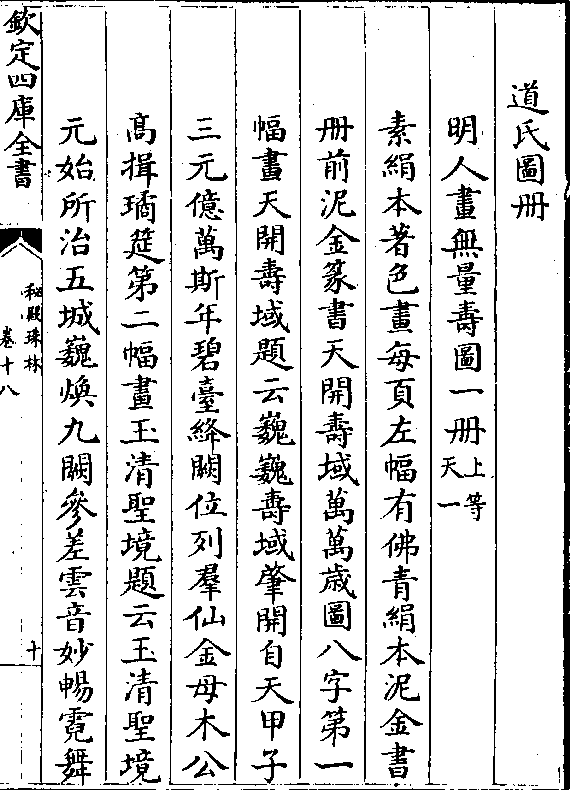 道氏圖册
明人畫無量壽圖一册上等天一
素絹本著色畫每頁左幅有佛青絹本泥金書
册前泥金篆書天開壽域萬萬歲圖八字第一
幅畫天開壽域題云巍巍壽域肇開自天甲子
三元億萬斯年碧臺絳闕位列羣仙金母木公
高揖璚筵第二幅畫玉清聖境題云玉清聖境
元始所治五城巍煥九闕參差雲音妙暢霓舞
欽定四庫全書
秘殿珠林
卷十八
十